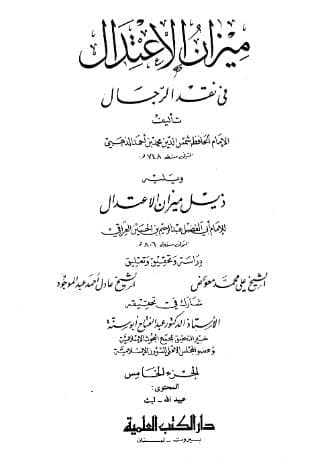 ميزان الاعتدال
في نقد الرجال
تأليف
الإمام الحافظ شمس الدين محمد بن أحمد الذهبي
المتوفى سنة ٧٤٨ هـ
ويليه
ذيل ميزان الاعتدال
للإمام أبي الفضل عبد الرحيم بن الحسين العراقي
المتوفى سنة ٨٠٦ هـ
دراسة وتحقيق وتعليق
الشيخ علي محمد معوض الشيخ عادل أحمد عبد الموجود
شارك في تحقيقه
الأستاذ الدكتور عبد الفتاح أبو سنة
خبير التحقيق بمجمع البحوث الإسلامية
وعضو المجلس الأعلى للشئون الإسلامية
الجزء الخامس
المحتوى:
عبيد الله - ليث
دار الكتب العلمية
بيروت - لبنان